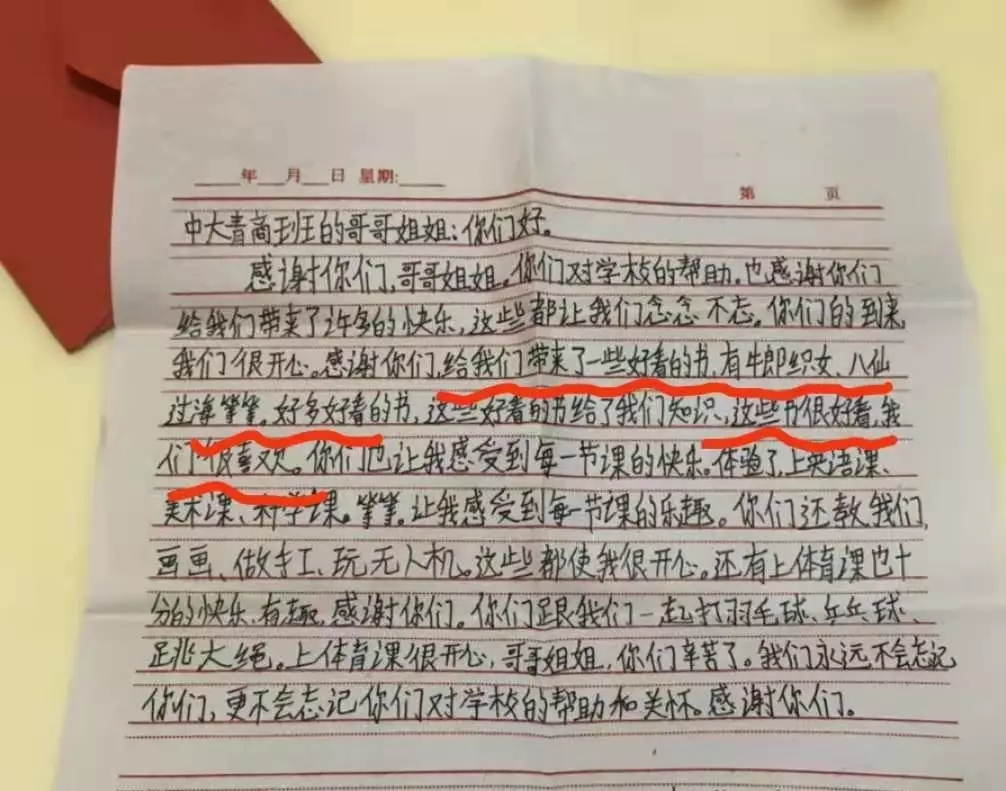 ____年___月___日 星期:_____
第 页
中大青商班的哥哥姐姐：你们好。
感谢你们，哥哥姐姐。你们对学校的帮助。也感谢你们
给我们带来了许多的快乐，这些都让我们念念不忘。你们的到来，
我们很开心。感谢你们，给我们带来了一些好看的书，有牛郎织女、八仙
过海等等。好多好看的书，这些好看的书给了我们知识，这些书很好看，我
们很喜欢。你们也让我感受到每一节课的快乐。体验了，上英语课、
美术课、科学课。等等。让我感受到每一节课的乐趣。你们还教我们，
画画、做手工、玩无人机。这些都使我很开心。还有上体育课也十
分的快乐、有趣，感谢你们。你们跟我们一起打羽毛球、乒乓球、
跳大绳。上体育课很开心，哥哥姐姐，你们辛苦了。我们永远不会忘记
你们，更不会忘记你们对学校的帮助和关怀。感谢你们。